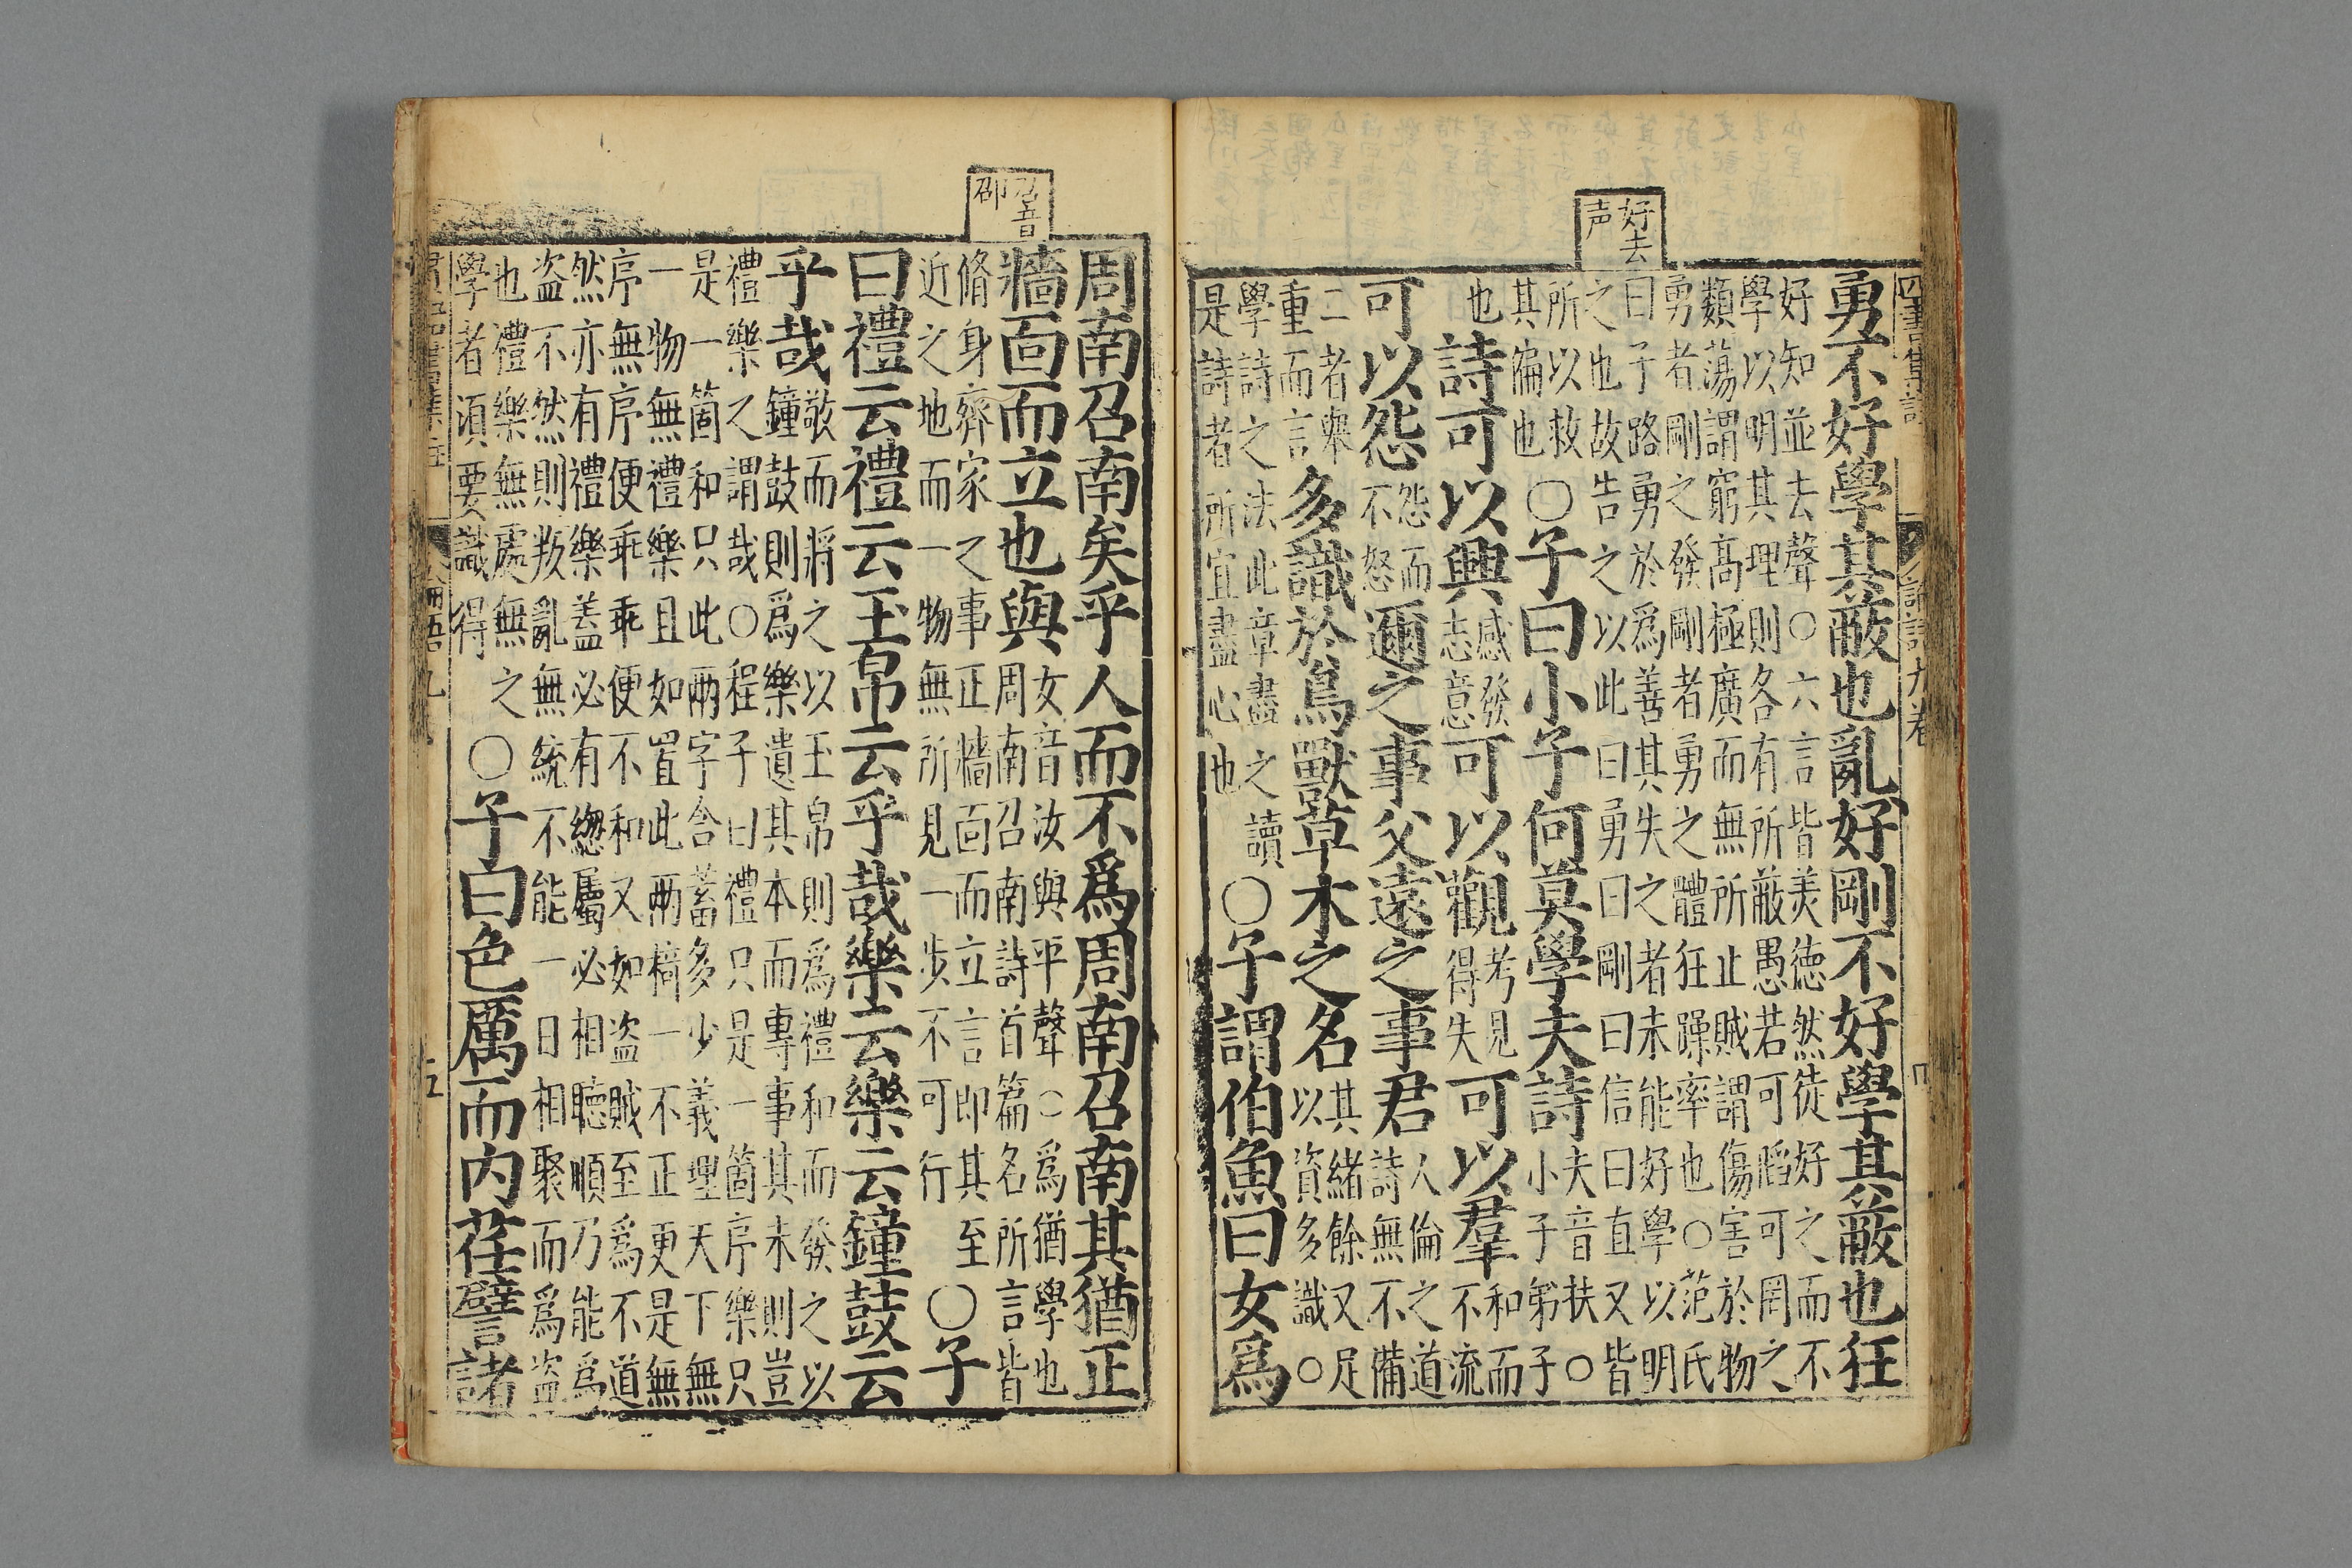 好去
声
四書集註
論語九卷
勇不好學其蔽也亂好剛不好學其蔽也狂
好知並去聲○六言皆美德然徒好之而不
學以明其理則各有所蔽愚若可䧟可罔之
類蕩謂窮高極廣而無所止賊謂傷害於物
勇者剛之發剛者勇之體狂躁率也○范氏
曰子路勇於爲善其失之者未能好學以明
之也故告之以此曰勇曰剛曰信曰直又皆
所以救
其偏也
○子曰小子何莫學夫詩
夫音扶○
小子弟子
也
詩可以興
感發
志意
可以觀
考見
得失
可以羣
和而
不流
可以怨
怨而
不怒
邇之事父遠之事君
人倫之道
詩無不備
二者舉
重而言
多識於鳥獸草木之名
其緒餘又足
以資多識○
學詩之法此章盡之讀
是詩者所宜盡心也
○子謂伯魚曰女爲
召音
邵
周南召南矣乎人而不爲周南召南其猶正
牆面而立也與
女音汝與平聲○爲猶學也
周南召南詩首篇名所言皆
脩身齊家之事正牆面而立言即其至
近之地而一物無所見一步不可行
○子
曰禮云禮云玉帛云乎哉樂云樂云鐘鼓云
乎哉
敬而將之以玉帛則爲禮和而發之以
鐘鼓則爲樂遺其本而專事其末則豈
禮樂之謂哉○程子曰禮只是一箇序樂只
是一箇和只此兩字含蓄多少義理天下無
一物無禮樂且如置此兩椅一不正更是無
序無序便乖乖便不和又如盜賊至爲不道
然亦有禮樂蓋必有緫屬必相聽順乃能爲
盜不然則叛亂無統不能一日相聚而爲盜
也禮樂無處無之
學者須要識得
○子曰色厲而內荏譬諸
論語九
五